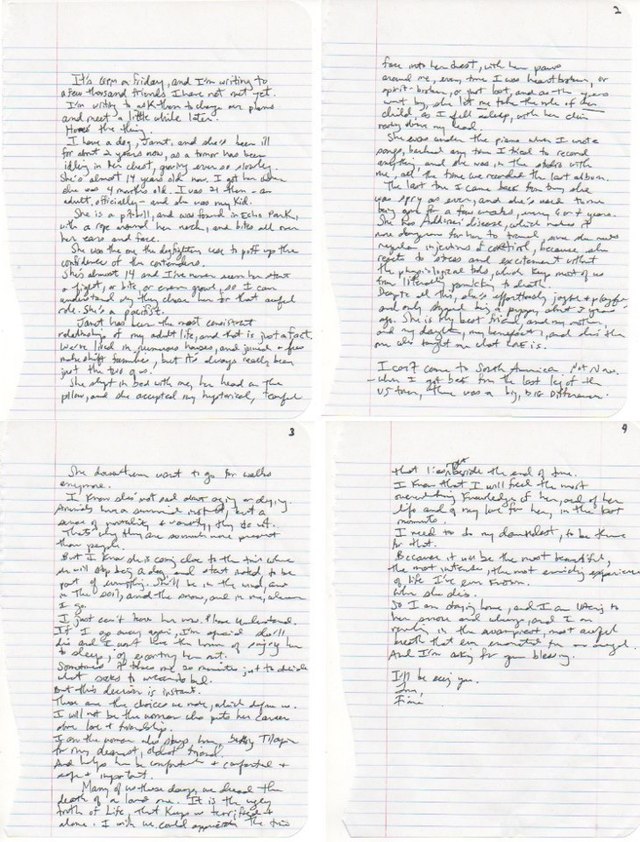 It's 6pm on a Friday, and I'm writing to
a few thousand friends I have not met yet.
I'm writing to ask them to change our plans
and meet a little while later.
Here's the thing.
I have a dog, Janet, and she's been ill
for about 2 years now, as a tumor has been
idling in her chest, growing ever so slowly.
She's almost 14 years old now. I got her when
she was 4 months old. I was 21 then - an
adult, officially - and she was my kid.
She is a pitbull, and was found in Echo Park,
with a rope around her neck, and bites all over
her ears and face.
She was the one the dogfighters use to puff up the
confidence of the contenders.
She's almost 14 and I've never seen her start
a fight, or bite, or even growl, so I can
understand why they chose her for that awful
role. She's a pacifist.
Janet has been the most consistent
relationship of my adult life, and that is just a fact.
We've lived in numerous houses, and joined a few
makeshift families, but it's always really been
just the two of us.
She slept in bed with me, her head on the
pillow, and she accepted my hysterical, tearful
2
face into her chest, with her paws
around me, every time I was heartbroken, or
spirit-broken, or just lost, and as the years
went by, she let me take the role of her
child, as I fell asleep, with her chin
resting above my head.
She was under the piano when I wrote
songs, barked any time I tried to record
anything, and she was in the studio with
me, all the time we recorded the last album.
The last time I came back from tour, she
was spry as ever, and she's used to me
being gone for a few weeks, every 6 or 7 years.
She has Addison's disease, which makes it
more dangerous for her to travel, since she needs
regular injections of cortisol, because she
reacts to stress and excitement without
the physiological tools which keep most of us
from literally panicking to death.
Despite all this, she's effortlessly joyful & playful
and only stopped being a puppy about 3 years
ago. She is my best friend, and my mother,
and my daughter, my benefactor, and she's the
one who taught me what love is.
I can't come to South America. Not Now.
- When I got back from the last leg of the
US tour, there was a big, big difference.
3
She doesn't even want to go for walks
anymore.
I know she's not sad about aging or dying.
Animals have a survival instinct, but a
sense of mortality & vanity, they do not.
That's why they are so much more present
than people.
But I know she is coming close to the time where
she will stop being a dog and start instead to be
part of everything. She'll be in the wind, and
in the soil, and the snow, and in me, wherever
I go.
I just can't leave her now, please understand.
If I go away again, I'm afraid she'll
die and I won't have the honor of singing her
to sleep, of escorting her out.
Sometimes it takes me 20 minutes just to decide
what socks to wear to bed.
But this decision is instant.
These are the choices we make, which define us.
I will not be the woman who puts her career
above love & friendship.
I am the woman who stays home, baking Tilapia
for my dearest, oldest friend.
And helps her be comfortable & comforted &
safe & important.
Many of us these days, we dread the
death of a loved one. It is the ugly
truth of Life, that keeps us terrified &
alone. I wish we could appreciate the time
4
that lies right beside the end of time.
I know that I will feel the most
overwhelming knowledge of her, and of her
life and of my love for her, in the last
moments.
I need to do my damnedest, to be there
for that.
Because it will be the most beautiful,
the most intense, the most enriching experience
of life I've ever known.
When she dies.
So I am staying home, and I am listening to
her snore and wheeze, and I am
reveling in the swampiest, most awful
breath that ever emanated from an angel.
And I'm asking for your blessing.
I'll be seeing you.
Love,
Fiona